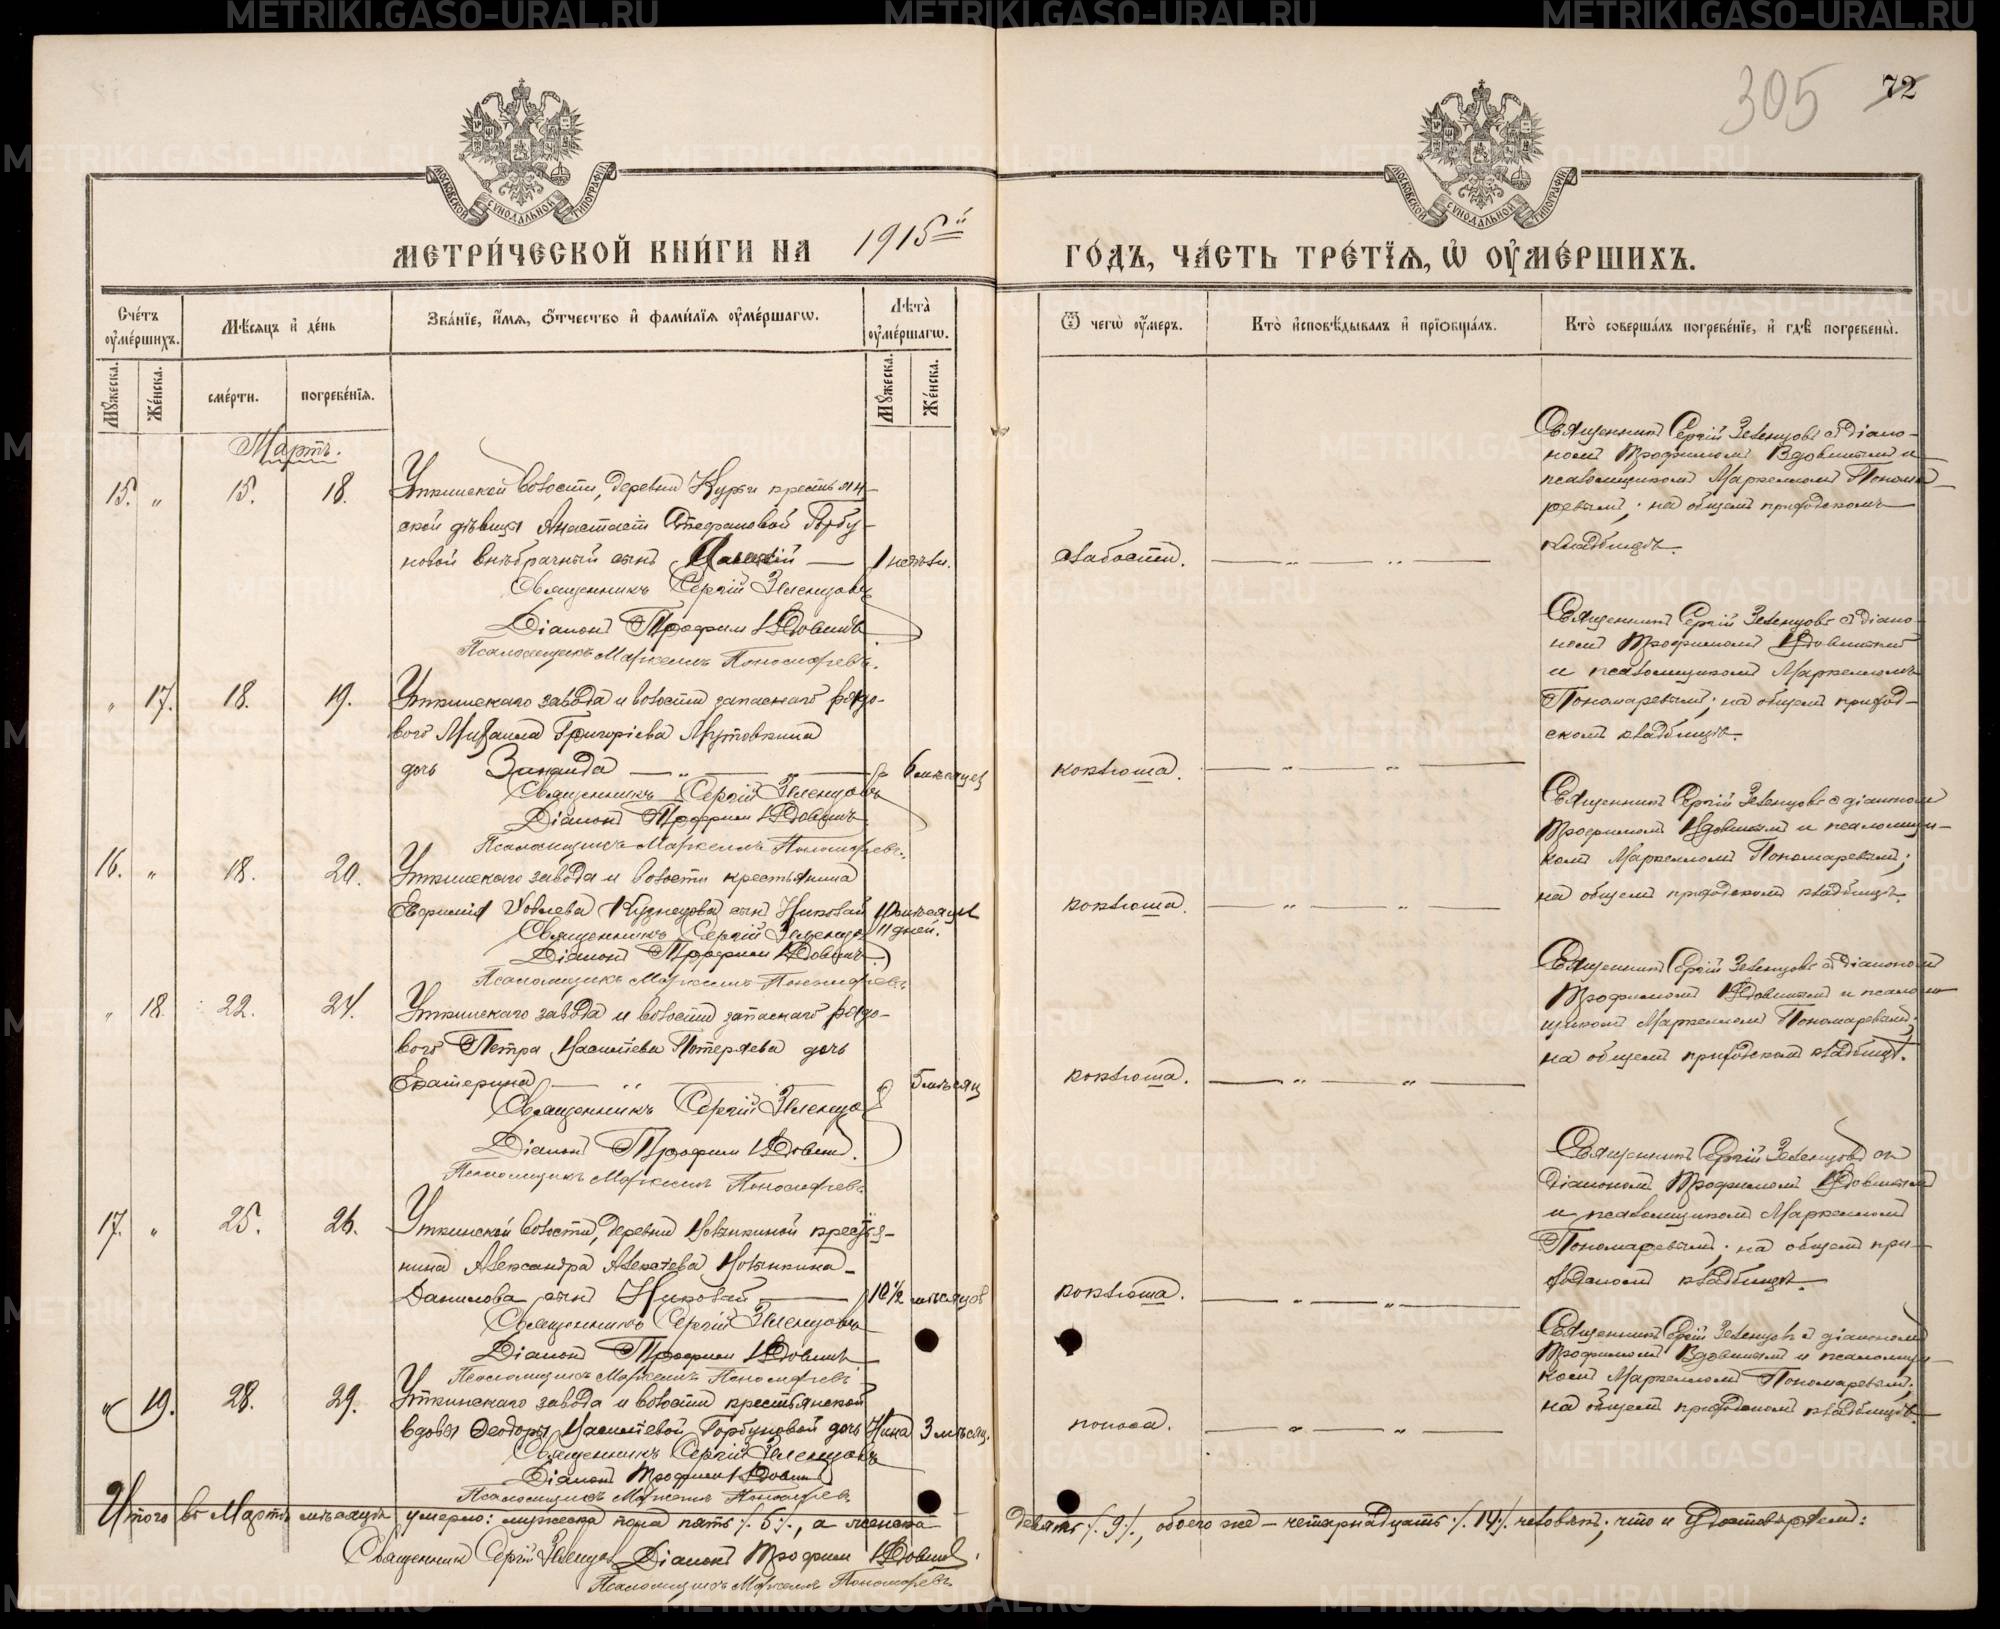 305
72
МОСКОВСКОЙ СѴНОДАЛЬНОЙ ТИПОГРАФІИ
МОСКОВСКОЙ СѴНОДАЛЬНОЙ ТИПОГРАФІИ
МЕТРИ́ЧЕСКОЙ КНИ́ГИ НА 1915й
ГО́ДЪ, ЧА́СТЬ ТРЕ́ТЇѦ, Ѡ ОУ҆МЕ́РШИХЪ.
Сче́тъ оу҆ме́ршихъ.
Мѣ́сяцъ и҆ де́нь
Зва́нїе, и҆́мя, ѻ҆́тчество и҆ фами́лїя оу҆ме́ршагѡ.
Лѣ́та оу҆ме́ршагѡ.
Мꙋ́жеска.
Же́нска.
сме́рти.
погребе́нїя.
Мꙋ́жеска.
Же́нска.
Ѿ чегѡ̀ оу҆́меръ.
Кто̀ и҆сповѣ́дывалъ и҆ прїѻбща́лъ.
Кто̀ соверша́лъ погребе́нїе, и҆ гдѣ̀ погребены̀.
Мартъ.
15. „ 15. 18. Уткинской волости, деревни Курьи крестьян-
ской дѣвицы Анастасіи Стефановой Горбу-
новой внѣбрачный сынъ — 1 недѣли.
Священникъ Сергій Зеленцовъ
Діаконъ Трофим Вдовинъ
Псаломщикъ Маркеллъ Пономаревъ.
слабости. — „ — „ —
Священникъ Сергій Зеленцовъ с діако-
номъ Трофимомъ Вдовинымъ и
псаломщикомъ Маркелломъ Понома-
ревымъ; на общемъ приходскомъ
кладбищѣ.
„ 17. 18. 19. Уткинскаго завода и волости запаснаго рядо-
вого Михаила Григоріева Мутовкина
дочь Зинаида — „ — 6 мѣсяцев
Священникъ Сергій Зеленцовъ
Діаконъ Трофим Вдовинъ
Псаломщикъ Маркеллъ Пономаревъ.
коклюша. — „ — „ —
Священникъ Сергій Зеленцовъ с діако-
номъ Трофимомъ Вдовинымъ
и псаломщикомъ Маркелломъ
Пономаревымъ; на общемъ приход-
скомъ кладбищѣ.
16. „ 18. 20. Уткинскаго завода и волости крестьянина
Евфимія Кузнецова сынъ Николай мѣсяцев
11 дней.
Священникъ Сергій Зеленцов
Діаконъ Трофим Вдовинъ
Псаломщикъ Маркеллъ Пономаревъ
коклюша. — „ — „ —
Священникъ Сергій Зеленцовъ с діакономъ
Трофимомъ Вдовинымъ и псаломщи-
комъ Маркелломъ Пономаревымъ;
на общемъ приходскомъ кладбищѣ.
„ 18. 22. 24. Уткинскаго завода и волости запаснаго рядо-
вого Петра Васильева Потеряева дочь
Екатерина — „ — 5 мѣсяц
Священникъ Сергій Зеленцо
Діаконъ Трофим Вдовин.
Псаломщикъ Маркеллъ Пономаревъ
коклюша. — „ — „ —
Священникъ Сергій Зеленцовъ с діакономъ
Трофимомъ Вдовинымъ и псалом-
щикомъ Маркелломъ Пономаревымъ;
на общемъ приходскомъ кладбищѣ.
17. „ 25. 26. Уткинской волости, деревни крестья-
нина Александра Алексѣева
Данилова сынъ Николай — 10 1/2 мѣсяцов
Священникъ Сергій Зеленцовъ
Діаконъ Трофим Вдовинъ
Псаломщикъ Маркеллъ Пономаревъ
коклюша. — „ — „ —
Священникъ Сергій Зеленцовъ съ
Діакономъ Трофимомъ Вдовинымъ
и псаломщикомъ Маркелломъ
Пономаревымъ; на общемъ при-
ходскомъ кладбищѣ.
„ 19. 28. 29. Уткинскаго завода и волости крестьянской
вдовы Ѳеодоры Васильевой Горбуновой дочь Нина 3 мѣсяц.
Священникъ Сергій Зеленцовъ
Діаконъ Трофим Вдовин
Псаломщикъ Маркеллъ Пономарев.
поноса. — „ — „ —
Священникъ Сергій Зеленцовъ с діакономъ
Трофимомъ Вдовинымъ и псаломщи-
комъ Маркелломъ Пономаревымъ;
на общемъ приходскомъ кладбищѣ.
Итого въ Мартѣ мѣсяцѣ умерло: мужеска пола пять ·/. 5 ·/., а женска
девять ·/. 9 ·/., обоего же – четырнадцать ·/. 14 ·/. человѣкъ; что и удостовѣряемъ:
Священникъ Сергій Зеленцов Діаконъ Трофим Вдовинъ.
Псаломщикъ Маркеллъ Пономаревъ